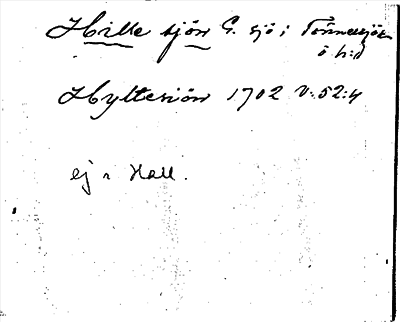 Hille sjön G. sjö i Tönnersjö
ö h:d
Hyltesiön 1702 V:52:4
ej i Hall.